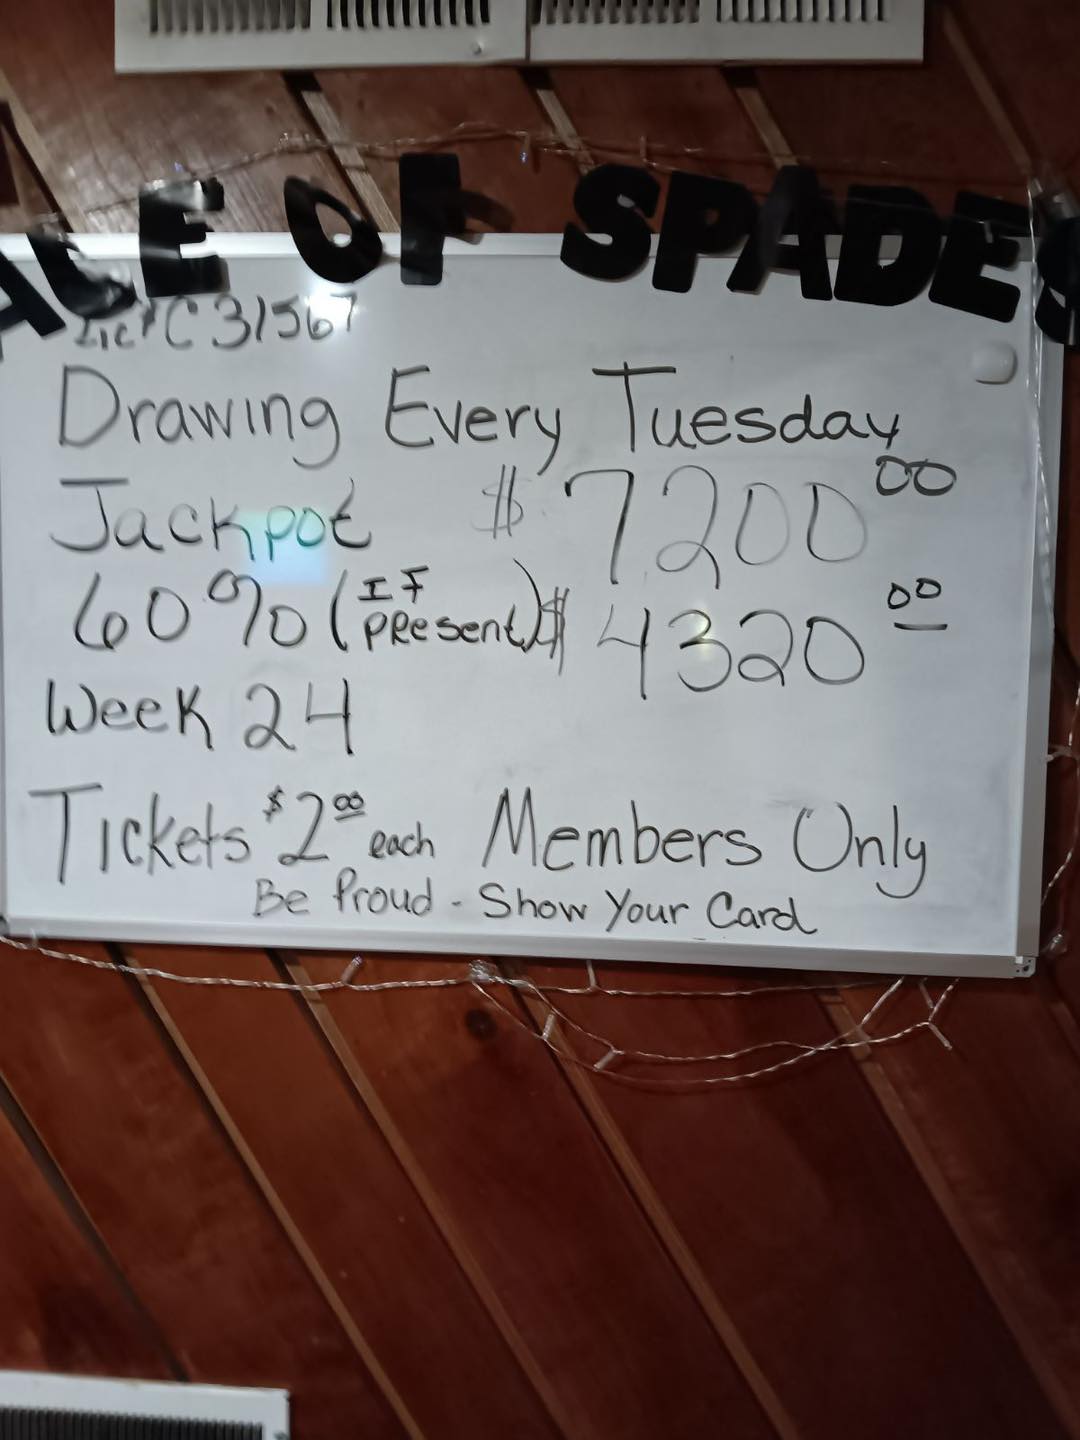 ACE OF SPADES
Lic# C31567
Drawing Every Tuesday
Jackpot $7200 00
60% (IF PRESENT) $4320 00
Week 24
Tickets $2 00 each Members Only
Be Proud - Show Your Card